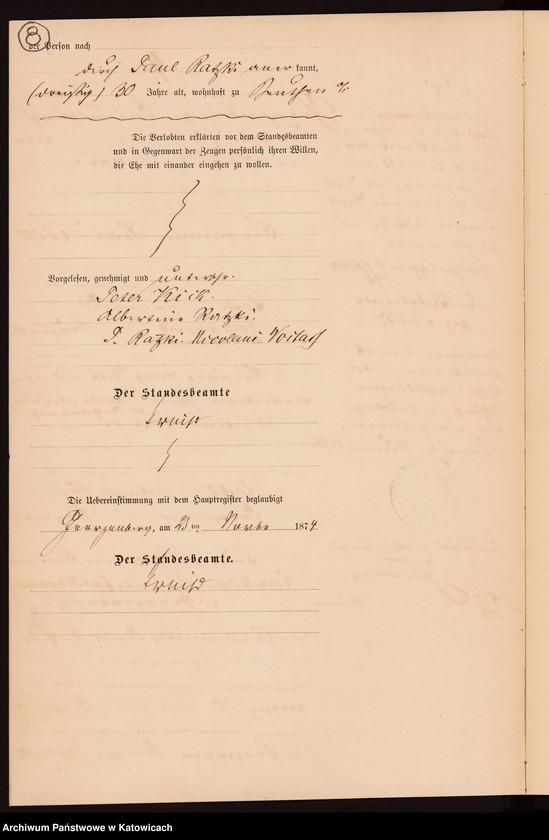 8
der Person nach
durch Paul Ratzki aner kannt,
(dreißig) 30 Jahre alt, wohnhaft zu Beuthen O/S
Die Verlobten erklärten vor dem Standesbeamten
und in Gegenwart der Zeugen persönlich ihren Willen,
die Ehe mit einander eingehen zu wollen.
Vorgelesen, genehmigt und unterschr.
Peter Kick.
Albertine Ratzki.
P. Ratzki. Nicolaus
Der Standesbeamte
Die Uebereinstimmung mit dem Hauptregister beglaubigt
Georgenberg, am 23 ten Novbr 1874
Der Standesbeamte.
Archiwum Państwowe w Katowicach